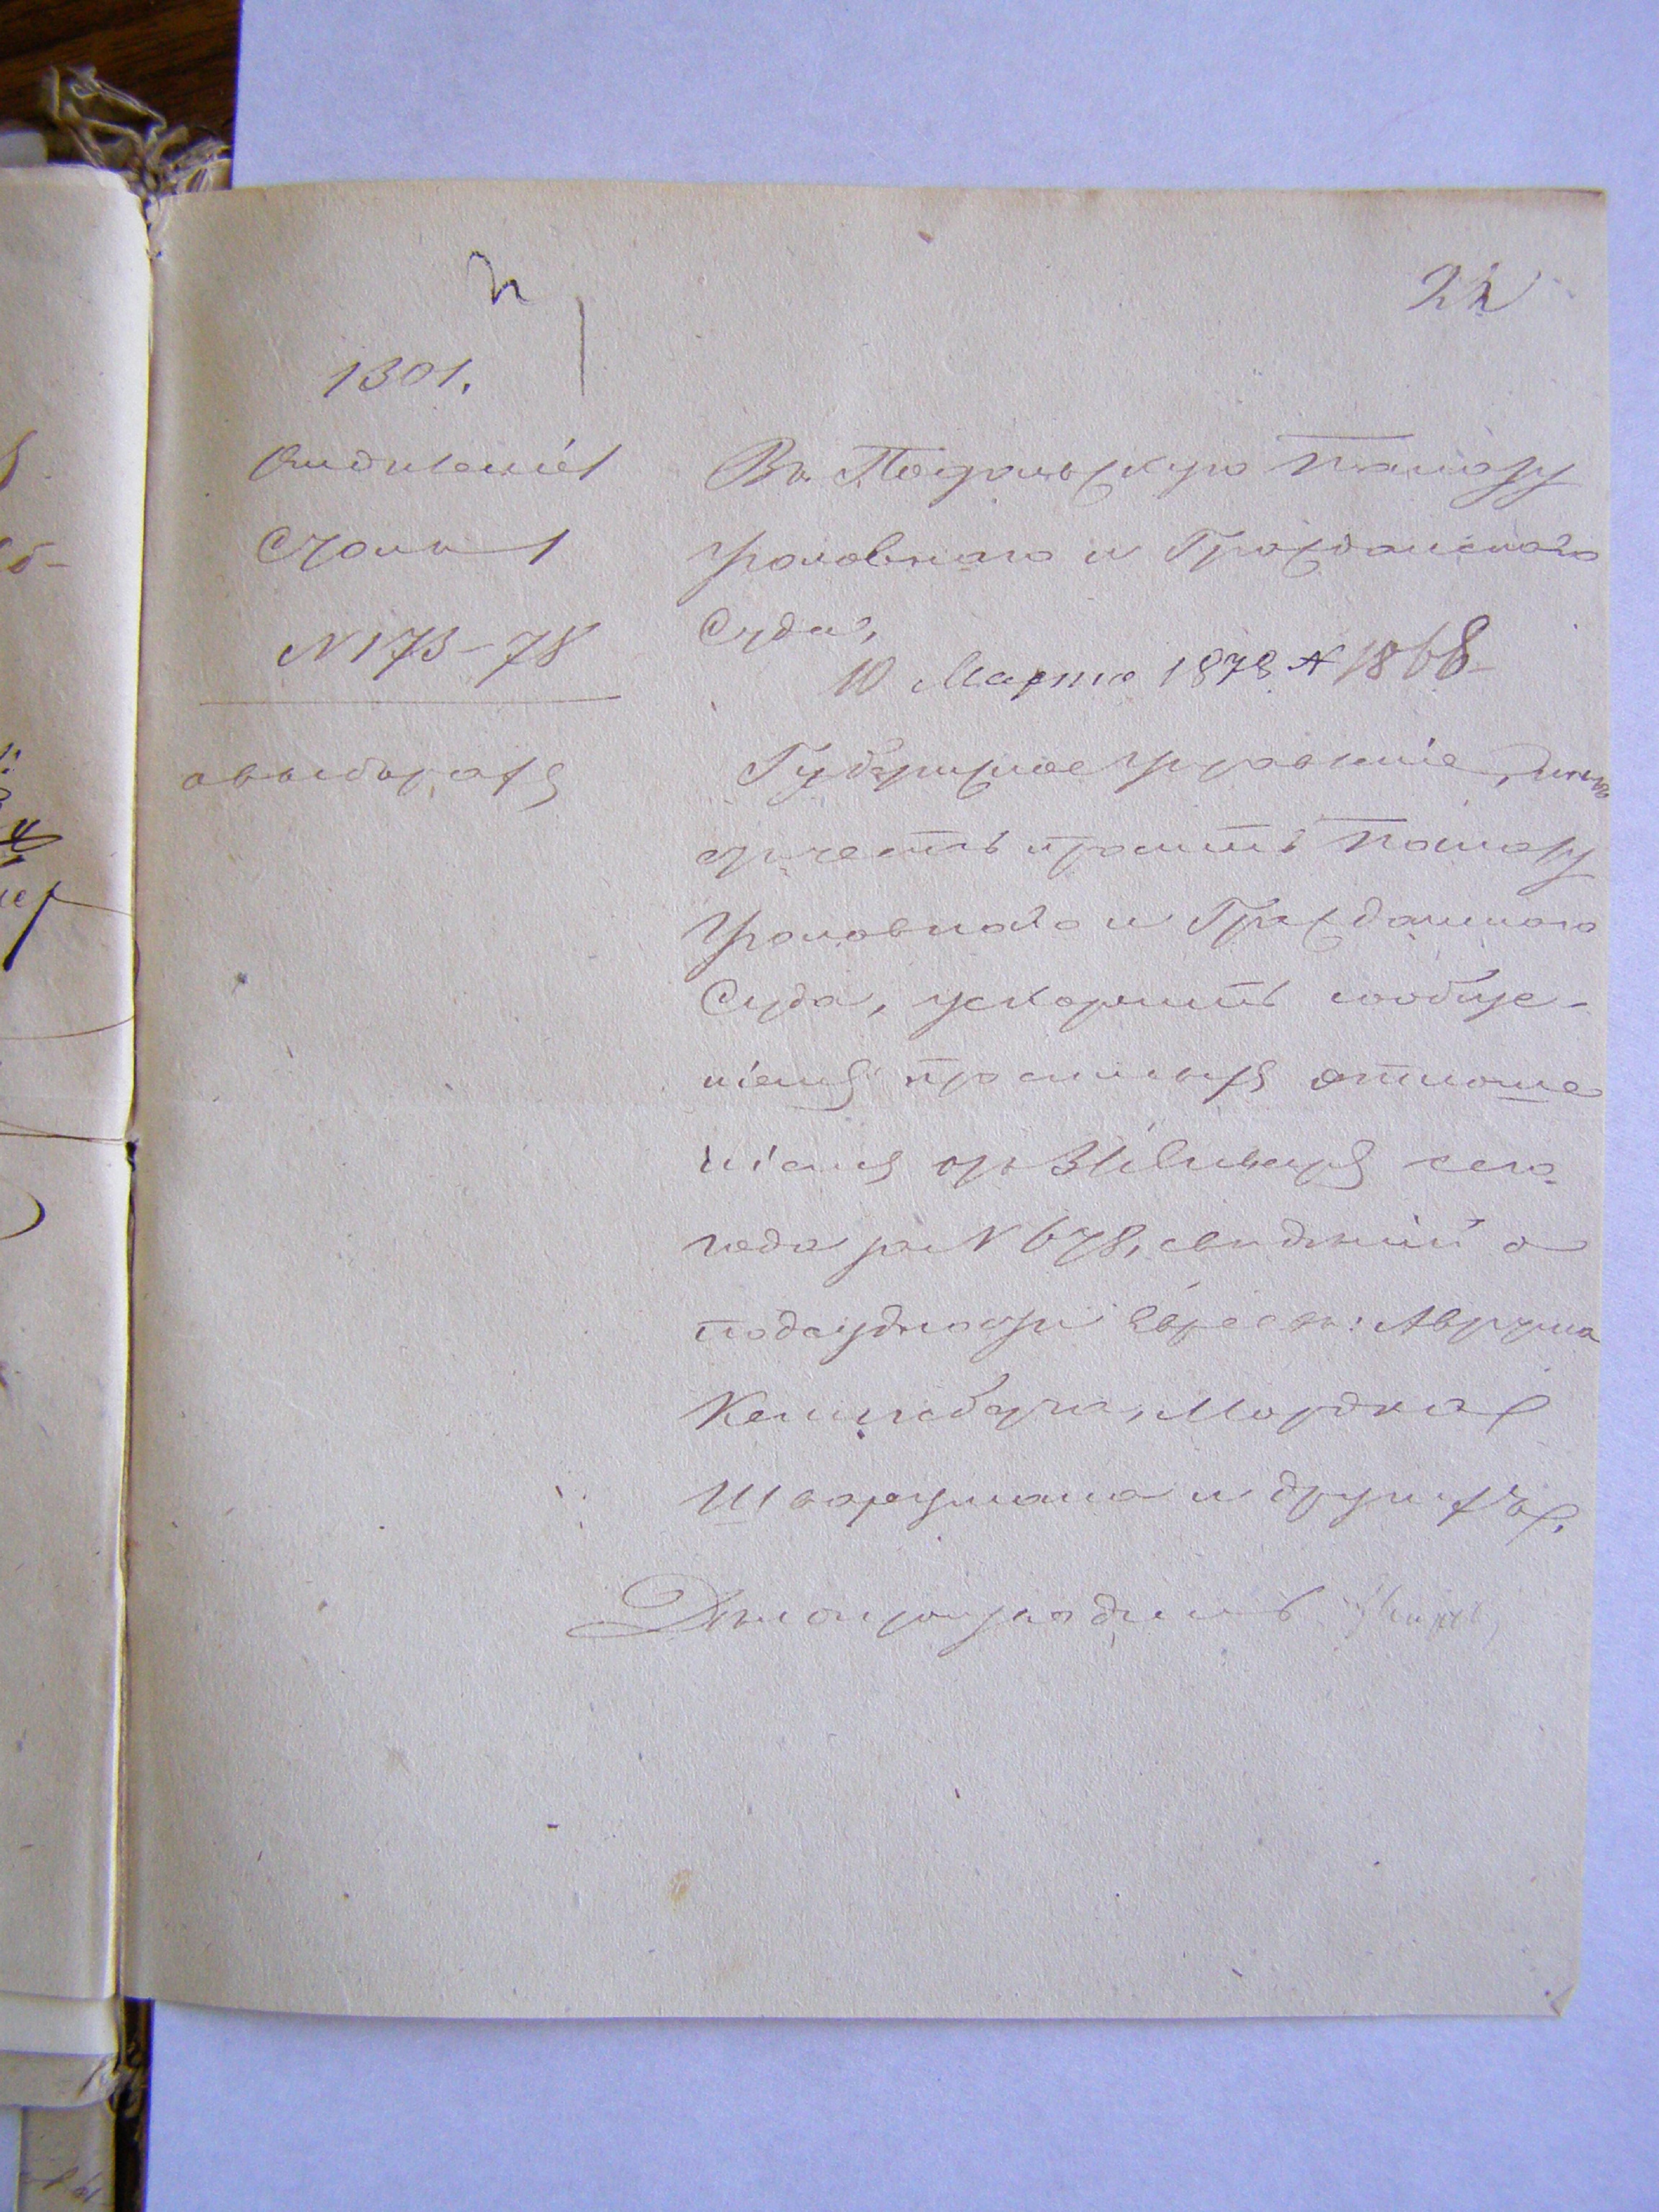 22
1301.
Отдѣленіе 1
Столъ 1
N 173-78
о выборахъ
Въ Подольскую Палату
Уголовнаго и Гражданскаго
Суда,
10 Марта 1878 N 1868
Губернское Правленіе,
честь проситъ Палату
Уголовнаго и Гражданскаго
Суда, ускорить сообще-
ніемъ просимыхъ отноше
ніемъ отъ 31 Января сего
года за N 678, свѣдѣній о
подсудности Евреевъ: Аврума
Мордка
Шварцмана и другихъ.
Дѣлопроизводитель